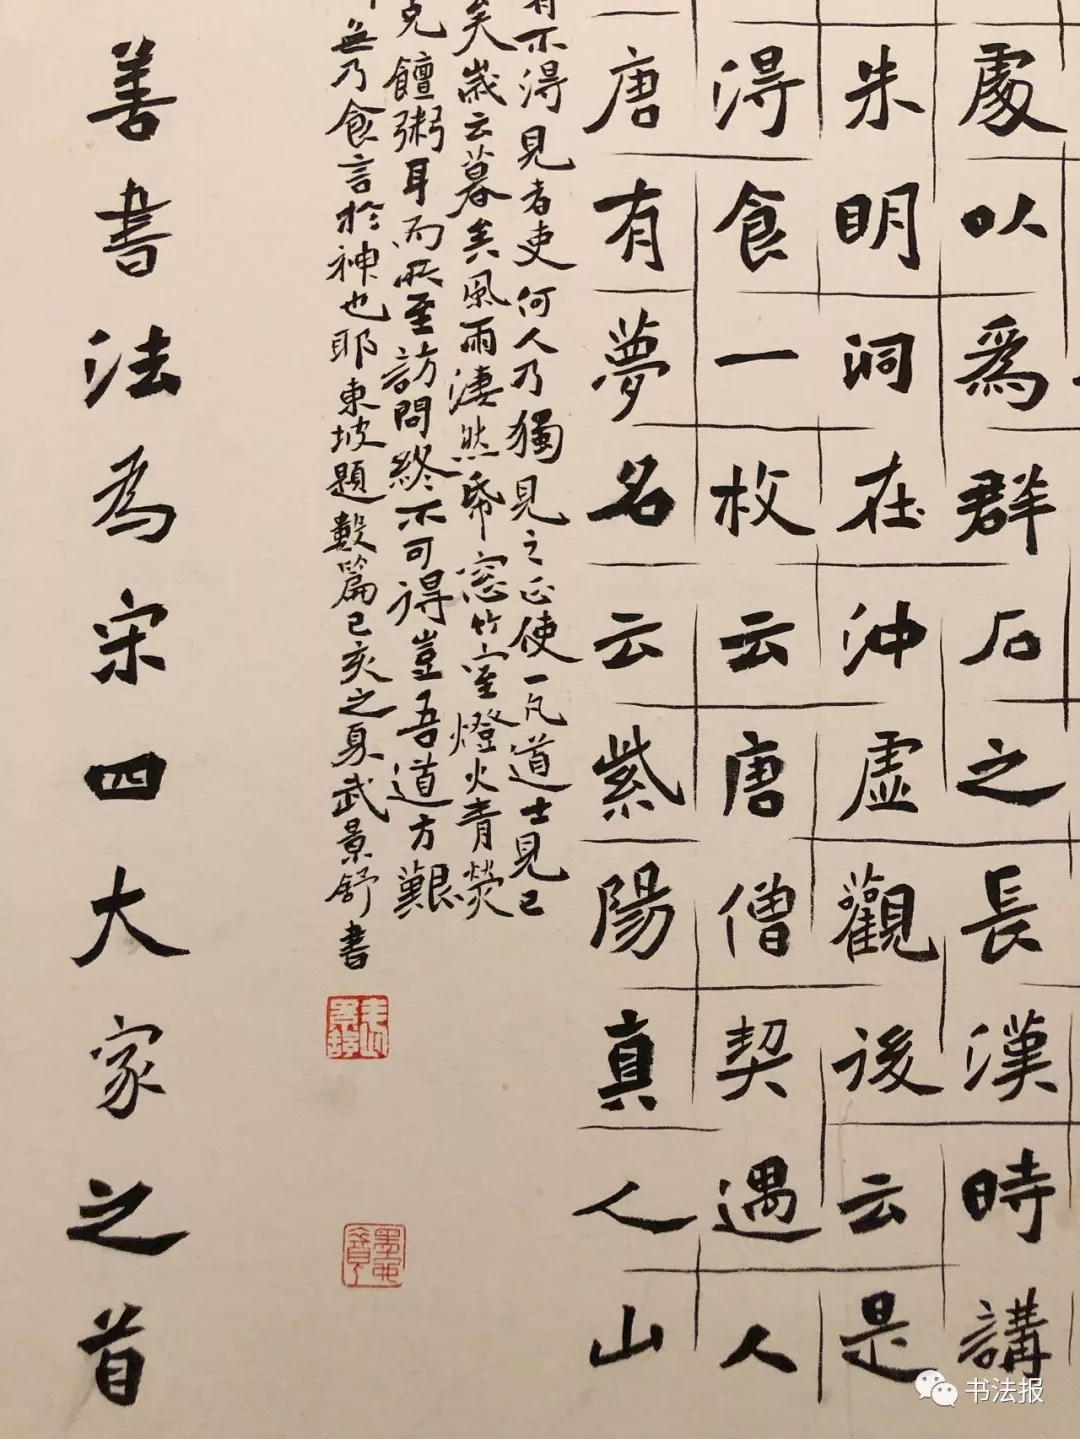 處以爲群石之長漢時講
朱明洞在沖虛觀後云是
得食一枚云唐僧契遇人
唐有夢名云紫陽真人山
有不得見者吏何人乃獨見之正使一凡道士見已
矣歲云暮矣風雨淒然紙窓竹室燈火青熒
克饘粥耳而所至訪問終不可得豈吾道方艱
無乃食言於神也耶東坡題數篇己亥之夏武景舒書
善書法為宋四大家之首
书法报